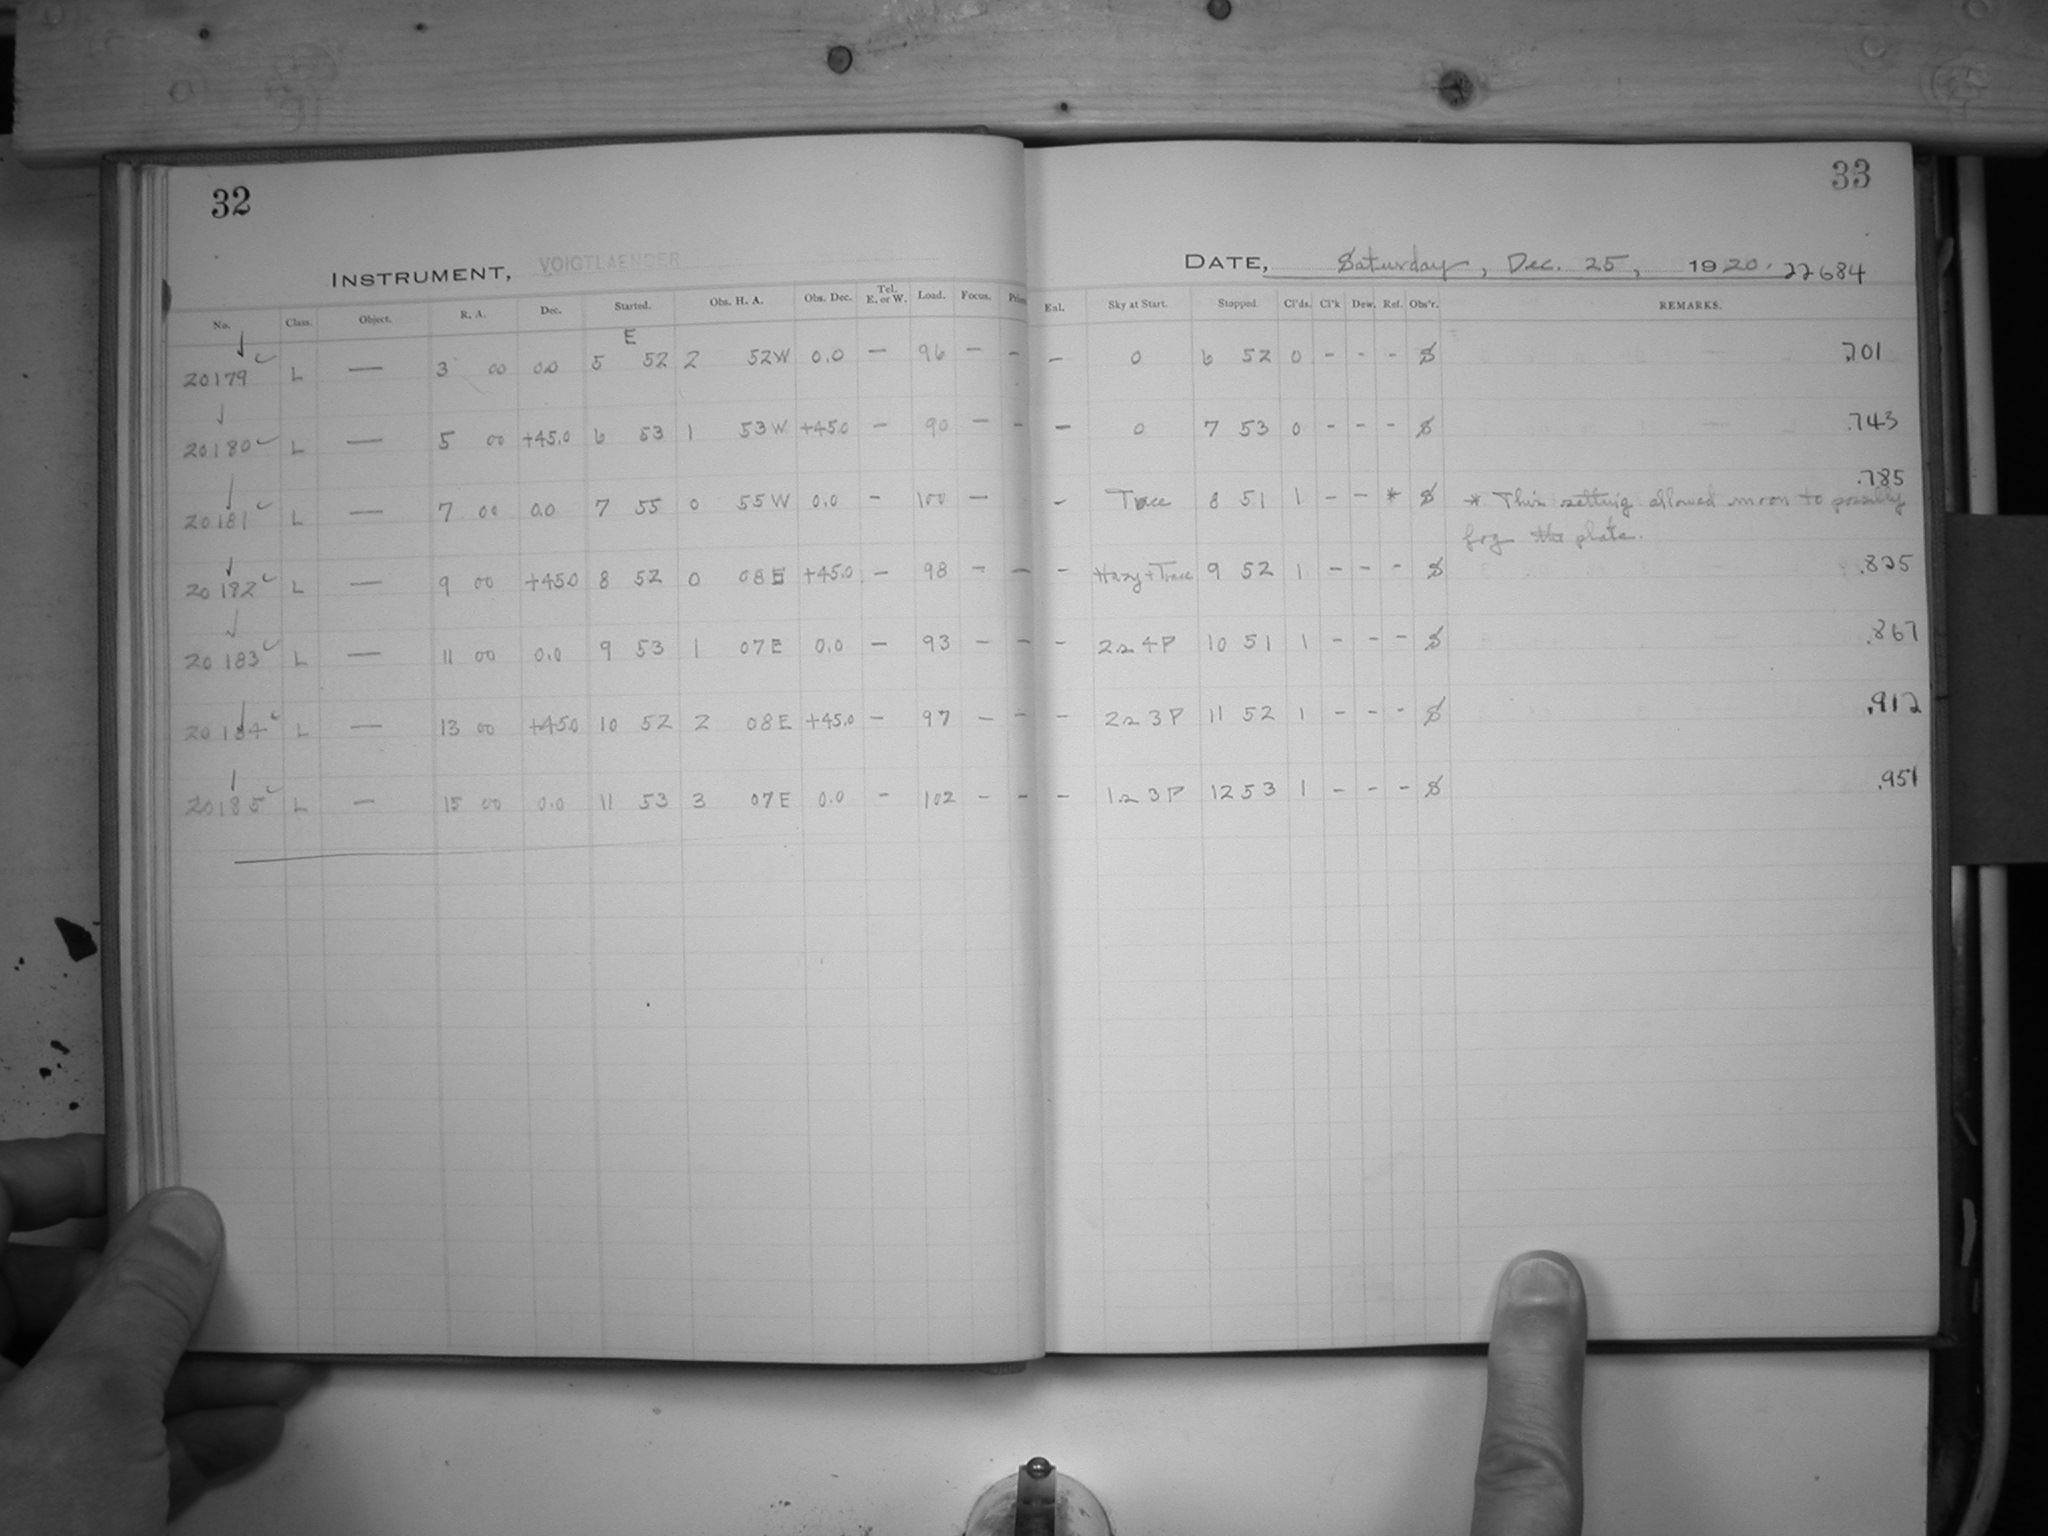 32
33
INSTRUMENT, VOIGTLAENDER
DATE, Saturday, Dec. 25, 1920. 22684
No. Class. Object. R. A. Dec. Started. Obs. H. A. Obs. Dec. Tel. E. or W. Load. Focus. Enl. Sky at Start. Stopped. Cl'ds. Cl'k Dew. Ref. Obs'r. REMARKS.
E
20179 L — 3 00 0.0 5 52 2 52W 0.0 — 96 — - - 0 6 52 0 - - - S .701
20180 L — 5 00 +45.0 6 53 1 53W +45.0 — 90 — - - 0 7 53 0 - - - S .743
20181 L — 7 00 0.0 7 55 0 55W 0.0 - 100 — - Trace 8 51 1 - - * S .785
* This setting allowed moon to possibly
fog the plate.
20182 L — 9 00 +45.0 8 52 0 08E +45.0 - 98 - - - Hazy + Trace 9 52 1 - - - S .825
20183 L — 11 00 0.0 9 53 1 07E 0.0 — 93 - - - 2 a 4 P 10 51 1 - - - S .867
20184 L — 13 00 +45.0 10 52 2 08E +45.0 - 97 - - - 2 a 3 P 11 52 1 - - - S .912
20185 L — 15 00 0.0 11 53 3 07E 0.0 - 102 - - - 1 a 3 P 12 53 1 - - - S .951